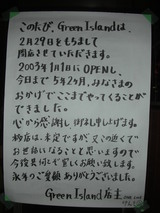 このたび、Green Islandは、
2月29日をもちまして
閉店させていただきます。
2003年1月1日にOPENし、
今日まで5年2ヶ月、みなさまの
おかげでここまでやってくることが
できました。
心から感謝し、御礼申し上げます。
移店は、未定ですが、又この近くで
お世話になることと思いますので
今後共何とぞ宜しくお願い致します。
永年のご愛顧ありがとうございました。
Green Island 店主